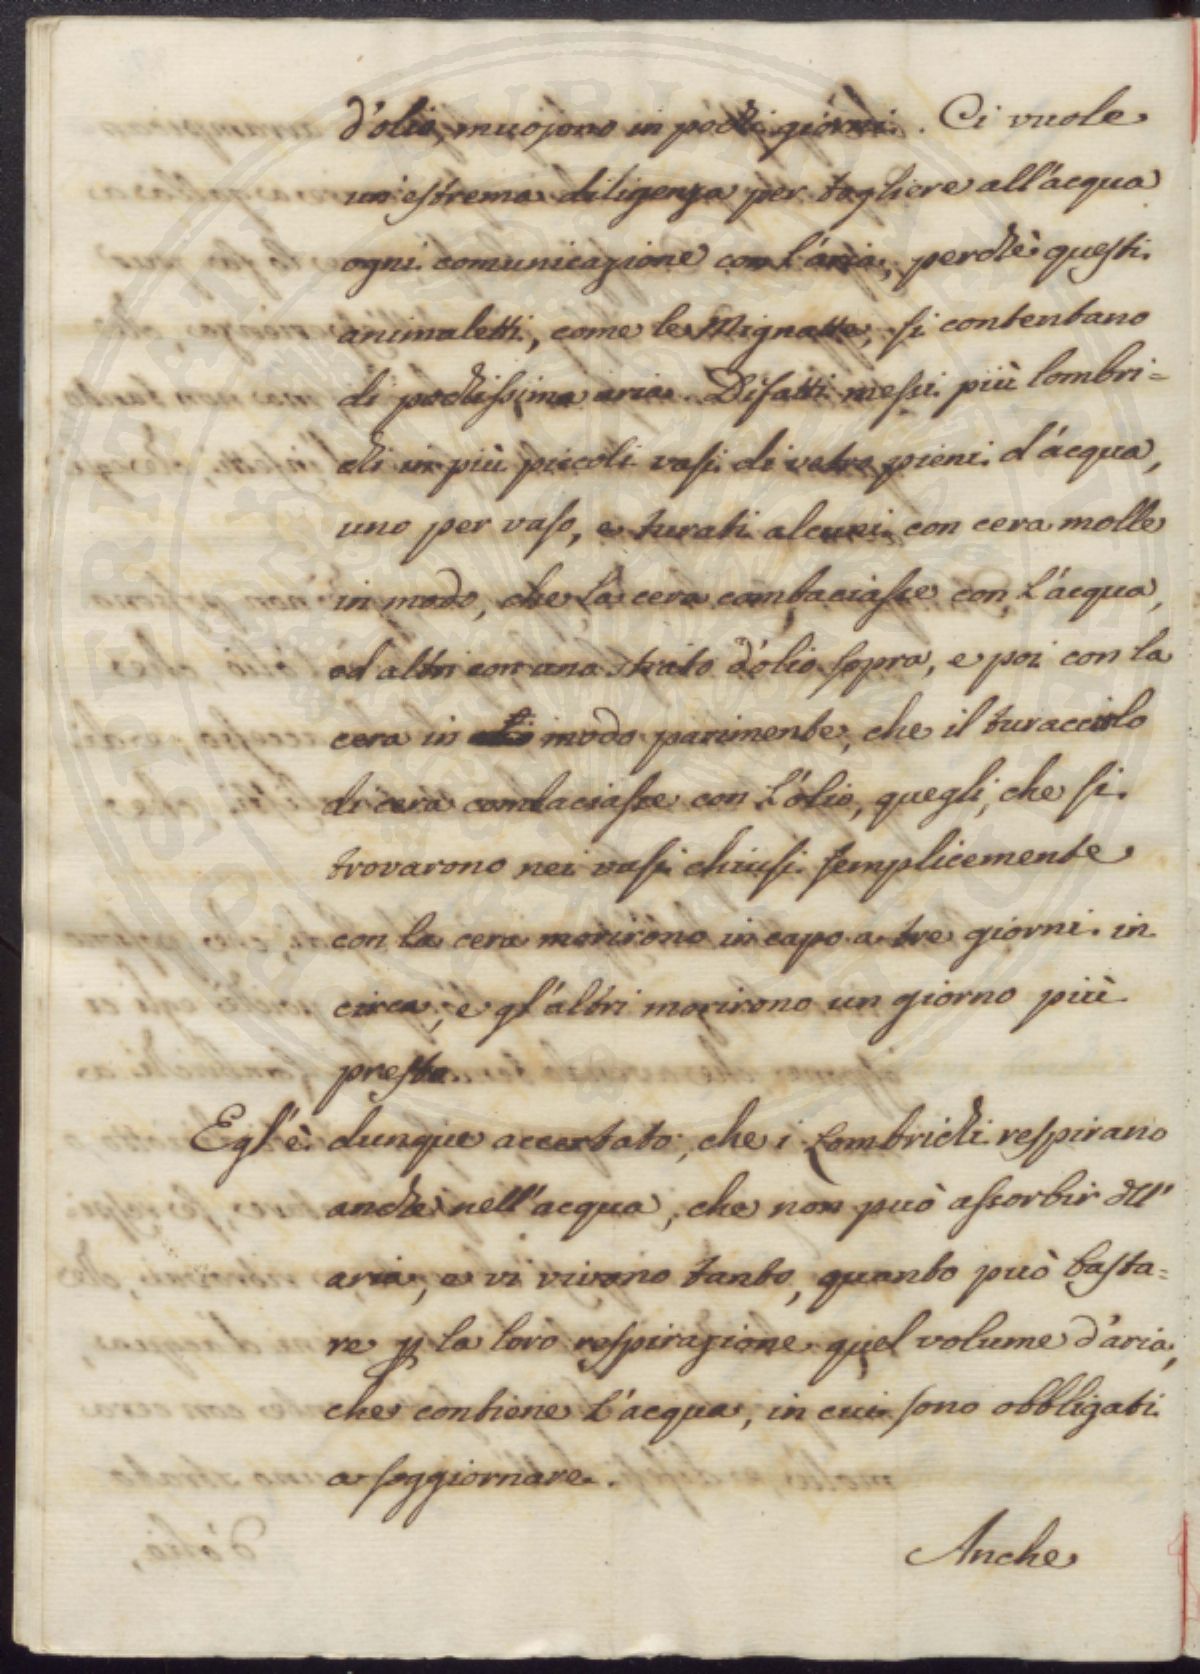 d'olio, muojono in pochi giorni. Ci vuole
un'estrema diligenza per togliere all'acqua
ogni comunicazione con l'aria, perchè questi
animaletti, come le Mignatte, si contentano
di pochissima aria. Difatti messi più lombri=
chi in più piccoli vasi di vetro pieni d'acqua,
uno per vaso, e turati alcuni con cera molle
in modo, che la cera combaciasse con l'acqua,
ed altri con uno strato d'olio sopra, e poi con la
cera in modo parimente, che il turacciolo
di cera combaciasse con l'olio, quegli, che si
trovarono nei vasi chiusi semplicemente
con la cera morirono in capo a tre giorni in
circa; e gl'altri morirono un giorno più
presto.
Egl'è dunque accertato, che i Lombrichi respirano
anche nell'acqua, che non può assorbir dell'
aria, e vi vivono tanto, quanto può basta=
re p la loro respirazione quel volume d'aria,
che contiene l'acqua, in cui sono obbligati
a soggiornare.
Anche